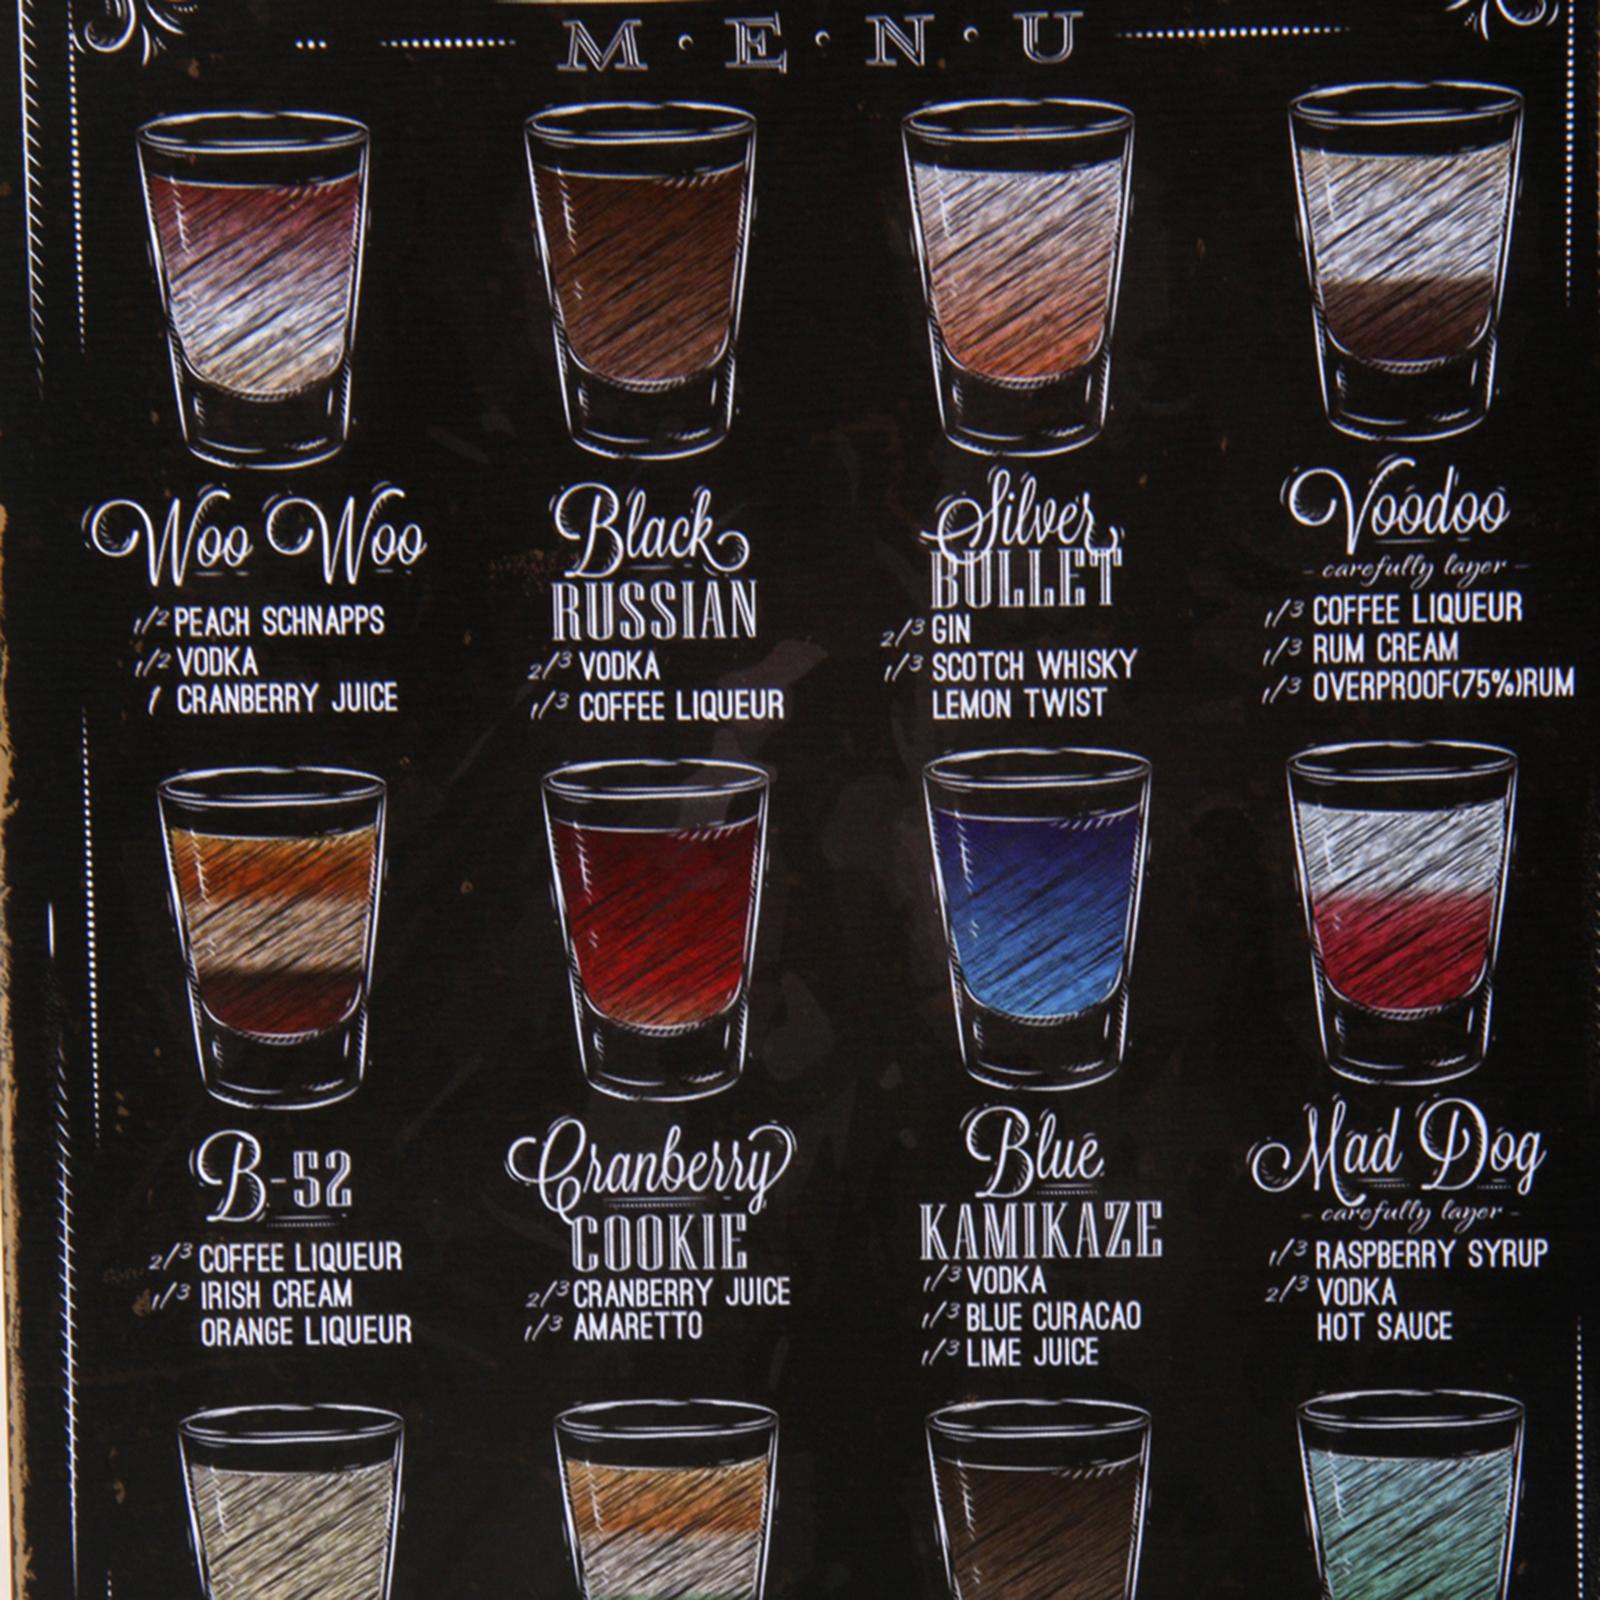 M·E·N·U
Woo Woo
1/2 PEACH SCHNAPPS
1/2 VODKA
1 CRANBERRY JUICE
Black
RUSSIAN
2/3 VODKA
1/3 COFFEE LIQUEUR
Silver
BULLET
2/3 GIN
1/3 SCOTCH WHISKY
LEMON TWIST
Voodoo
- carefully layer -
1/3 COFFEE LIQUEUR
1/3 RUM CREAM
1/3 OVERPROOF(75%)RUM
B-52
2/3 COFFEE LIQUEUR
1/3 IRISH CREAM
ORANGE LIQUEUR
Cranberry
COOKIE
2/3 CRANBERRY JUICE
1/3 AMARETTO
Blue
KAMIKAZE
1/3 VODKA
1/3 BLUE CURACAO
1/3 LIME JUICE
Mad Dog
- carefully layer -
1/3 RASPBERRY SYRUP
2/3 VODKA
HOT SAUCE